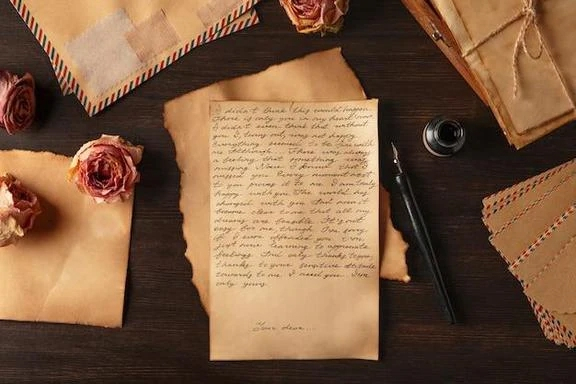 I didn't think this would happen.
There is only you in my heart now.
I didn't even think that without
you I was only not happy.
Everything seemed to be fine with
me. Although. There was always
a feeling that something was
missing. Now I know that I
missed you. Every moment next
to you proves it to me. I am truly
happy with you. The world has
changed with you. And haven't
become close to me that all my
dreams are feasible. It's not
easy for me, though. I'm sorry
if I ever offended you. I'm
just now learning to appreciate
feelings. And only thanks to you,
thanks to your sensitive attitude
towards to me. I need you. I'm
only yours.
Your dear...